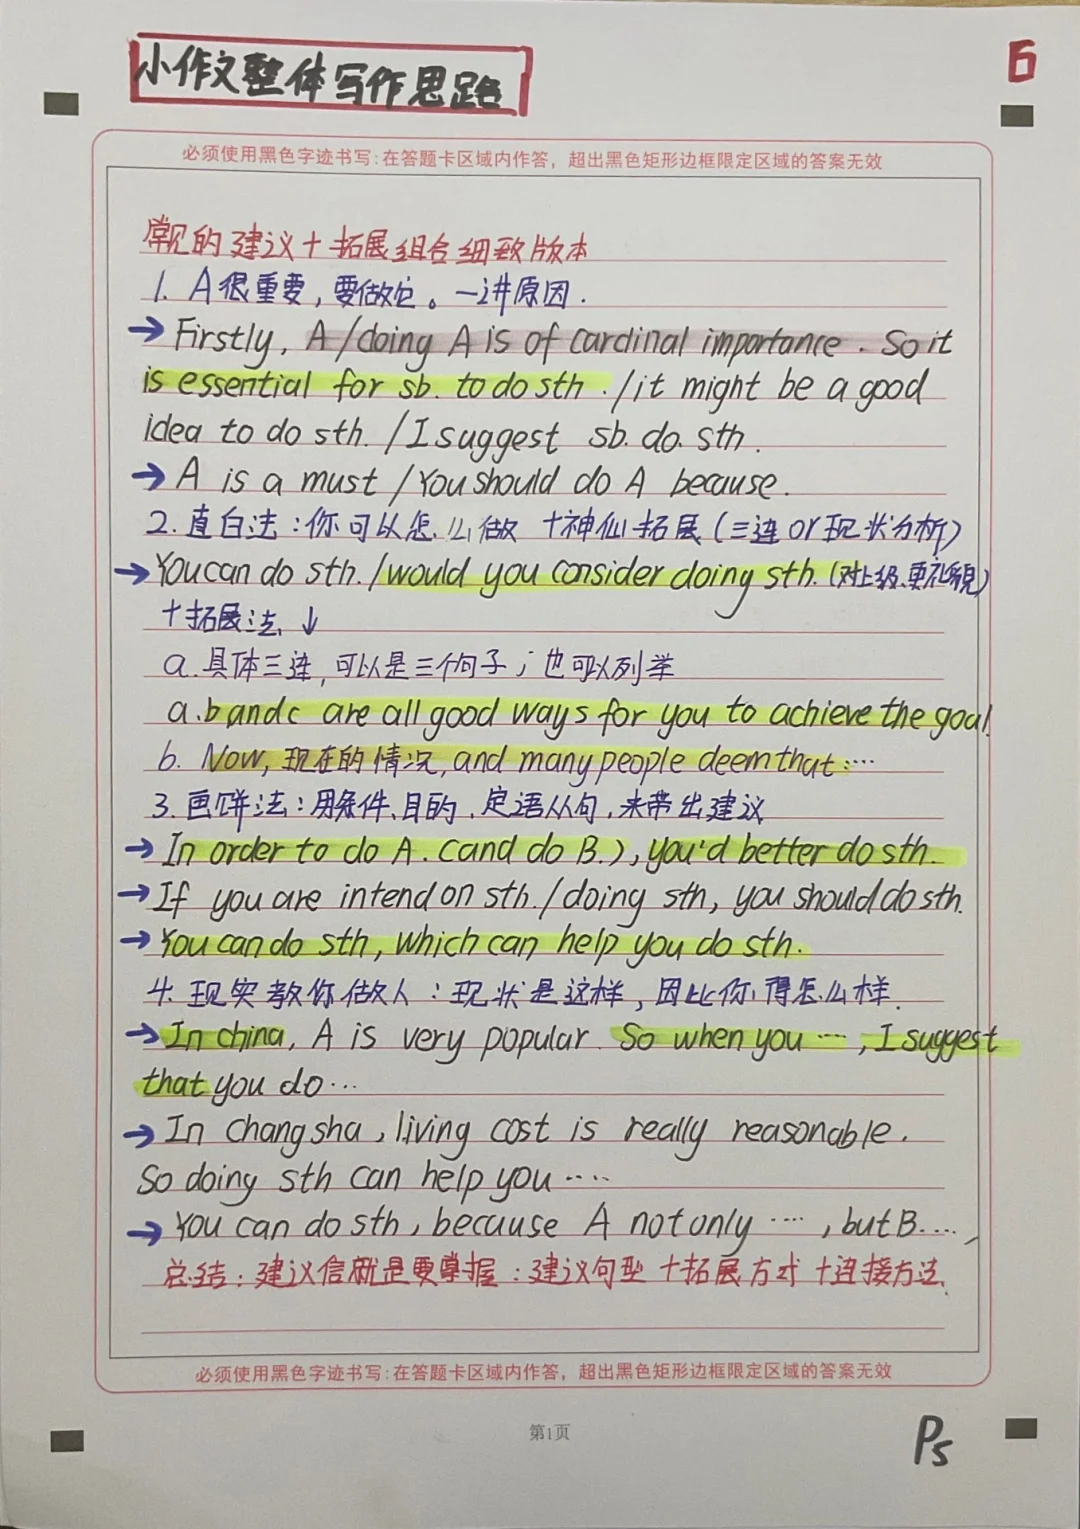 小作文整体写作思路
6
必须使用黑色字迹书写:在答题卡区域内作答，超出黑色矩形边框限定区域的答案无效
常见的建议+拓展组合细致版本
1. A很重要，要做它。一讲原因.
→ Firstly, A/doing A is of cardinal importance. So it
is essential for sb. to do sth./it might be a good
idea to do sth./I suggest sb. do. sth.
→ A is a must/You should do A because.
2.直白法:你可以怎么做 +神仙拓展(三连or现状分析)
→ You can do sth./would you consider doing sth.(对上级、更礼貌)
+拓展法↓
a.具体三连,可以是三个句子;也可以列举
a.b and c are all good ways for you to achieve the goal.
b. Now, 现在的情况, and many people deem that:…
3.画饼法:用条件、目的、定语从句,来带出建议
→ In order to do A. (and do B.), you'd better do sth.
→ If you are intend on sth./doing sth, you should do sth.
→ You can do sth, which can help you do sth.
4.现实教你做人:现状是这样,因此你得怎么样.
→ In china, A is very popular. So when you …, I suggest
that you do…
→ In changsha, living cost is really reasonable.
So doing sth can help you ….
→ You can do sth, because A not only …, but B….,
总结:建议信就是要掌握:建议句型+拓展方式+连接方法.
必须使用黑色字迹书写:在答题卡区域内作答，超出黑色矩形边框限定区域的答案无效
第1页
P5